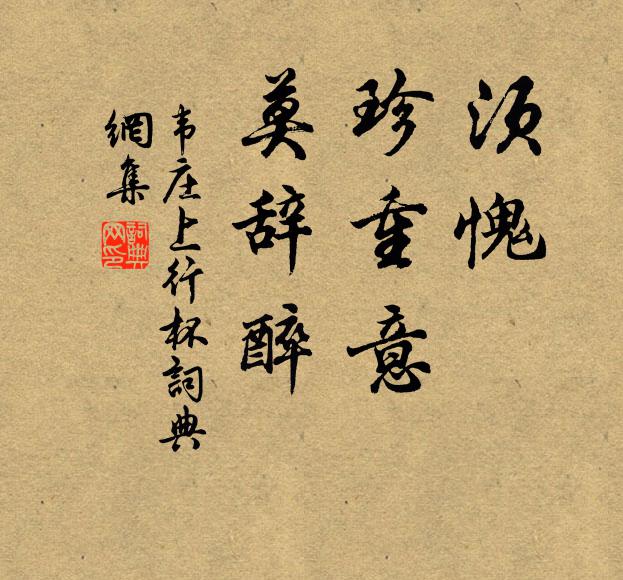 须愧
珍重意
莫辞醉
韦庄上行杯詞典
網集
詞典
网印